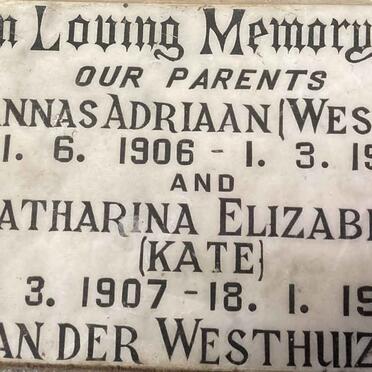 n Loving Memory
OUR PARENTS
NNAS ADRIAAN (WES
1. 6. 1906 - 1. 3. 19
AND
ATHARINA ELIZAB
(KATE)
3. 1907 - 18. 1. 19
AN DER WESTHUIZ